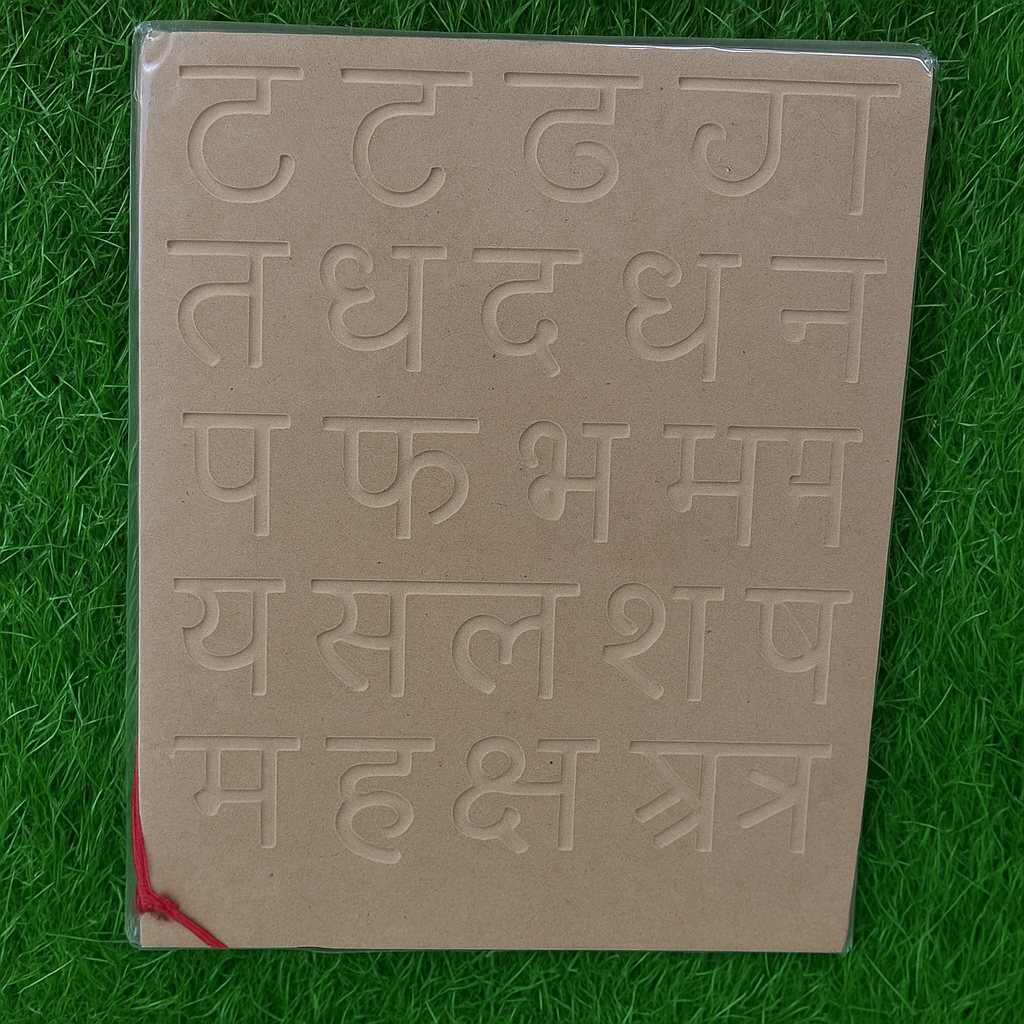 ट ट ढ ण
त ध द ध न
प फ भ म म
य स ल श ष
म ह क्ष